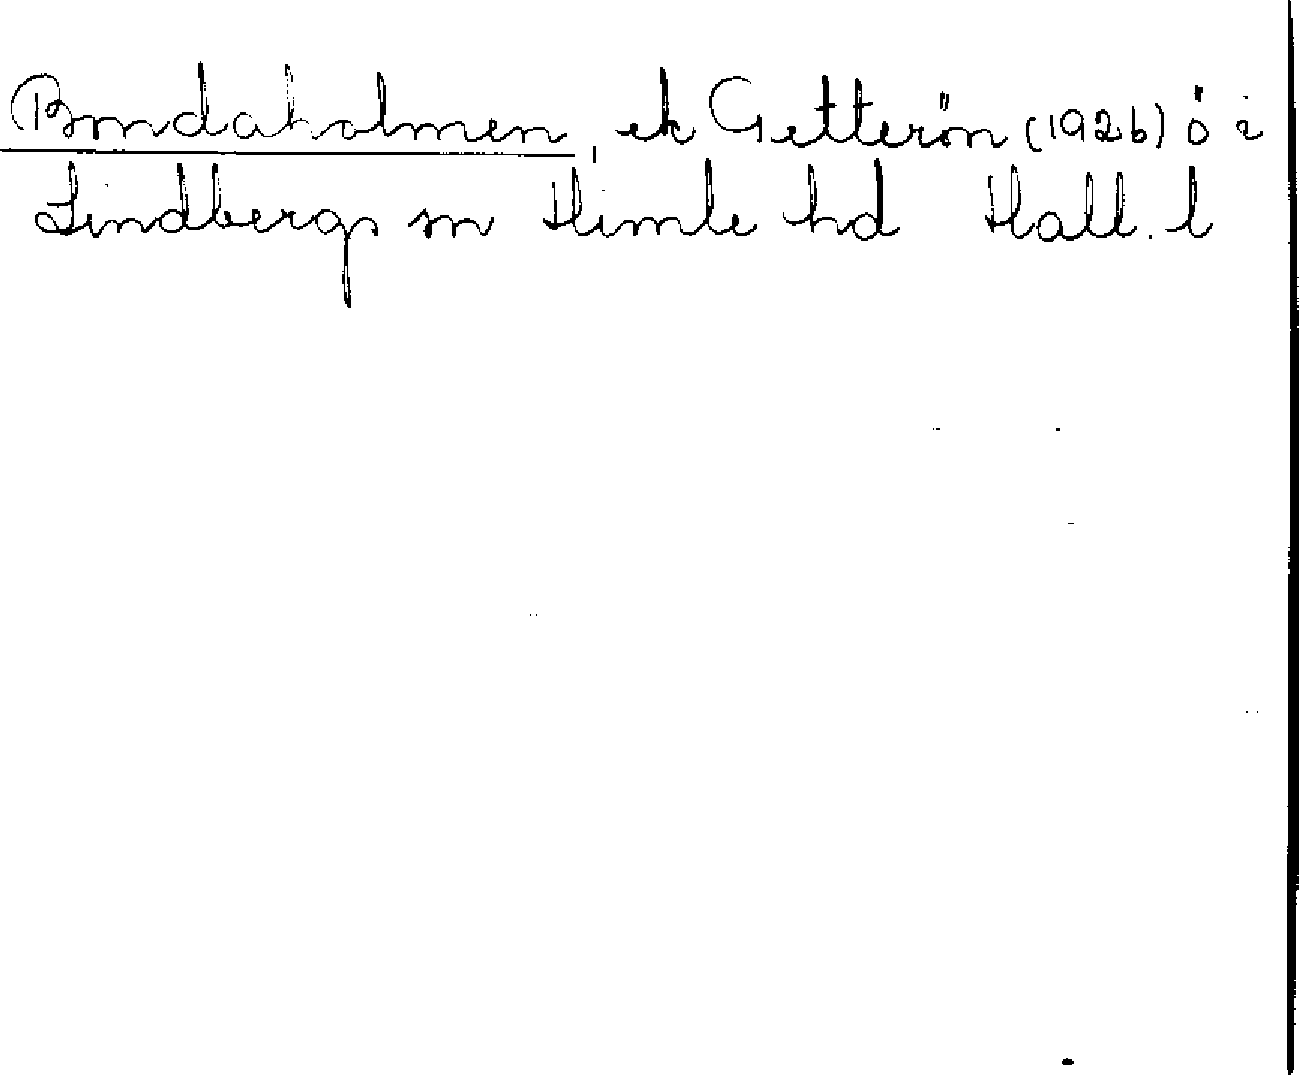 Bondaholmen, ek Getterön (1926) ö i
Lindbergs sn Himle hd Hall. l